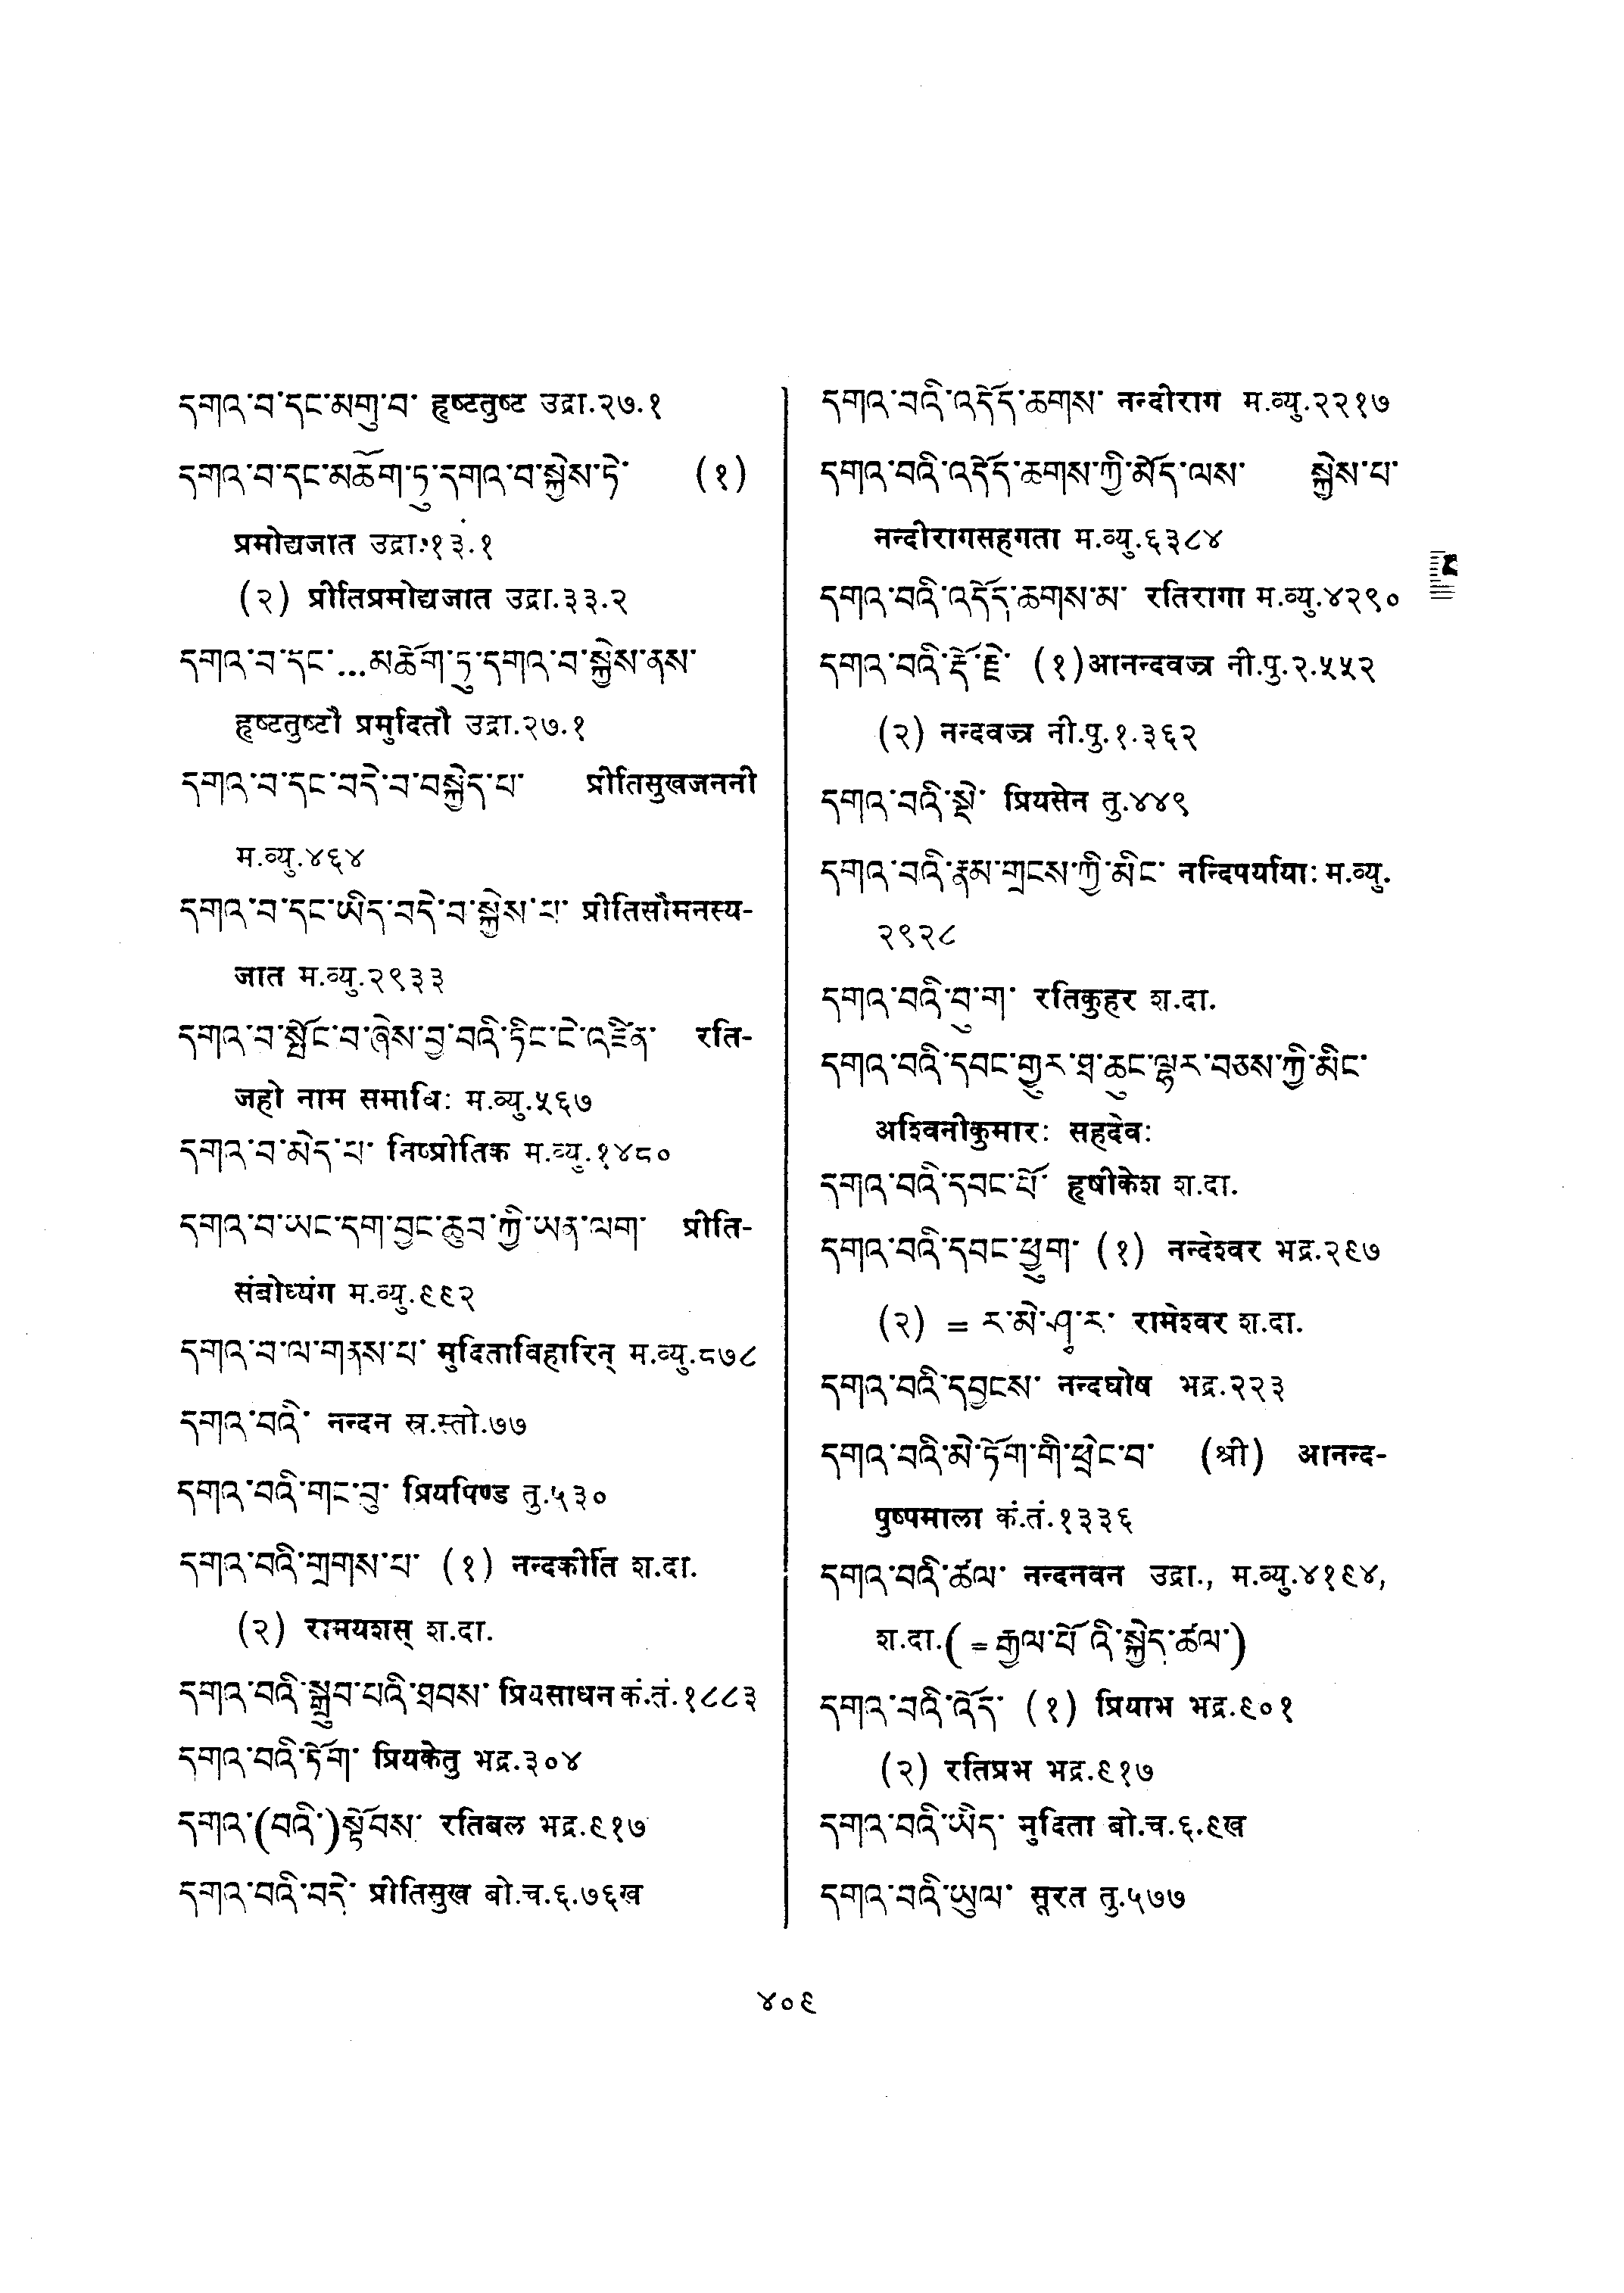 དགའ་བ་དང་མགུ་བ་ हृष्टतुष्ट उद्रा.२७.१
དགའ་བ་དང་མཆོག་ཏུ་དགའ་བ་སྐྱེས་ཏེ་ (१)
प्रमोद्यजात उद्रा.१३.१
(२) प्रीतिप्रमोद्यजात उद्रा.३३.२
དགའ་བ་དང་...མཆོག་ཏུ་དགའ་བ་སྐྱེས་ནས་
हृष्टतुष्टौ प्रमुदितौ उद्रा.२७.१
དགའ་བ་དང་བདེ་བ་བསྐྱེད་པ་ प्रीतिसुखजननी
म.व्यु.४६४
དགའ་བ་དང་ཡིད་བདེ་བ་སྐྱེས་པ་ प्रीतिसौमनस्य-
जात म.व्यु.२९३३
དགའ་བ་སྤོང་བ་ཞེས་བྱ་བའི་ཏིང་ངེ་འཛིན་ रति-
जहो नाम समाधिः म.व्यु.५६७
དགའ་བ་མེད་པ་ निष्प्रीतिक म.व्यु.१४८०
དགའ་བ་ཡང་དག་བྱང་ཆུབ་ཀྱི་ཡན་ལག་ प्रीति-
संबोध्यंग म.व्यु.९९२
དགའ་བ་ལ་གནས་པ་ मुदिताविहारिन् म.व्यु.८७८
དགའ་བའི་ नन्दन स्र.स्तो.७७
དགའ་བའི་གང་བུ་ प्रियपिण्ड तु.५३०
དགའ་བའི་གྲགས་པ་ (१) नन्दकीर्ति श.दा.
(२) रामयशस् श.दा.
དགའ་བའི་སྒྲུབ་པའི་ཐབས་ प्रियसाधन कं.तं.१८८३
དགའ་བའི་ཏོག་ प्रियकेतु भद्र.३०४
དགའ་(བའི་)སྟོབས་ रतिबल भद्र.९१७
དགའ་བའི་བདེ་ प्रीतिसुख बो.च.६.७६ख
དགའ་བའི་འདོད་ཆགས་ नन्दीराग म.व्यु.२२१७
དགའ་བའི་འདོད་ཆགས་ཀྱི་མོད་ལས་ སྐྱེས་པ་
नन्दीरागसहगता म.व्यु.६३८४
དགའ་བའི་འདོད་ཆགས་མ་ रतिरागा म.व्यु.४२९०
དགའ་བའི་རྡོ་རྗེ་ (१)आनन्दवज्र नी.पु.२.५५२
(२) नन्दवज्र नी.पु.१.३६२
དགའ་བའི་སྡེ་ प्रियसेन तु.४४९
དགའ་བའི་རྣམ་གྲངས་ཀྱི་མིང་ नन्दिपर्यायाः म.व्यु.
२९२८
དགའ་བའི་བུ་ག་ रतिकुहर श.दा.
དགའ་བའི་དབང་གྱུར་ཐ་ཆུང་ལྷར་བཅས་ཀྱི་མིང་
अश्विनीकुमारः सहदेवः
དགའ་བའི་དབང་པོ་ हृषीकेश श.दा.
དགའ་བའི་དབང་ཕྱུག་ (१) नन्देश्वर भद्र.२९७
(२) = ར་མེ་ཤྭ་ར་ रामेश्वर श.दा.
དགའ་བའི་དབྱངས་ नन्दघोष भद्र.२२३
དགའ་བའི་མེ་ཏོག་གི་ཕྲེང་བ་ (श्री) आनन्द-
पुष्पमाला कं.तं.१३३६
དགའ་བའི་ཚལ་ नन्दनवन उद्रा., म.व्यु.४१९४,
श.दा.(=རྒྱལ་པོའི་སྐྱེད་ཚལ་)
དགའ་བའི་འོད་ (१) प्रियाभ भद्र.९०१
(२) रतिप्रभ भद्र.९१७
དགའ་བའི་ཡིད་ मुदिता बो.च.६.९ख
དགའ་བའི་ཡུལ་ सूरत तु.५७७
४०९